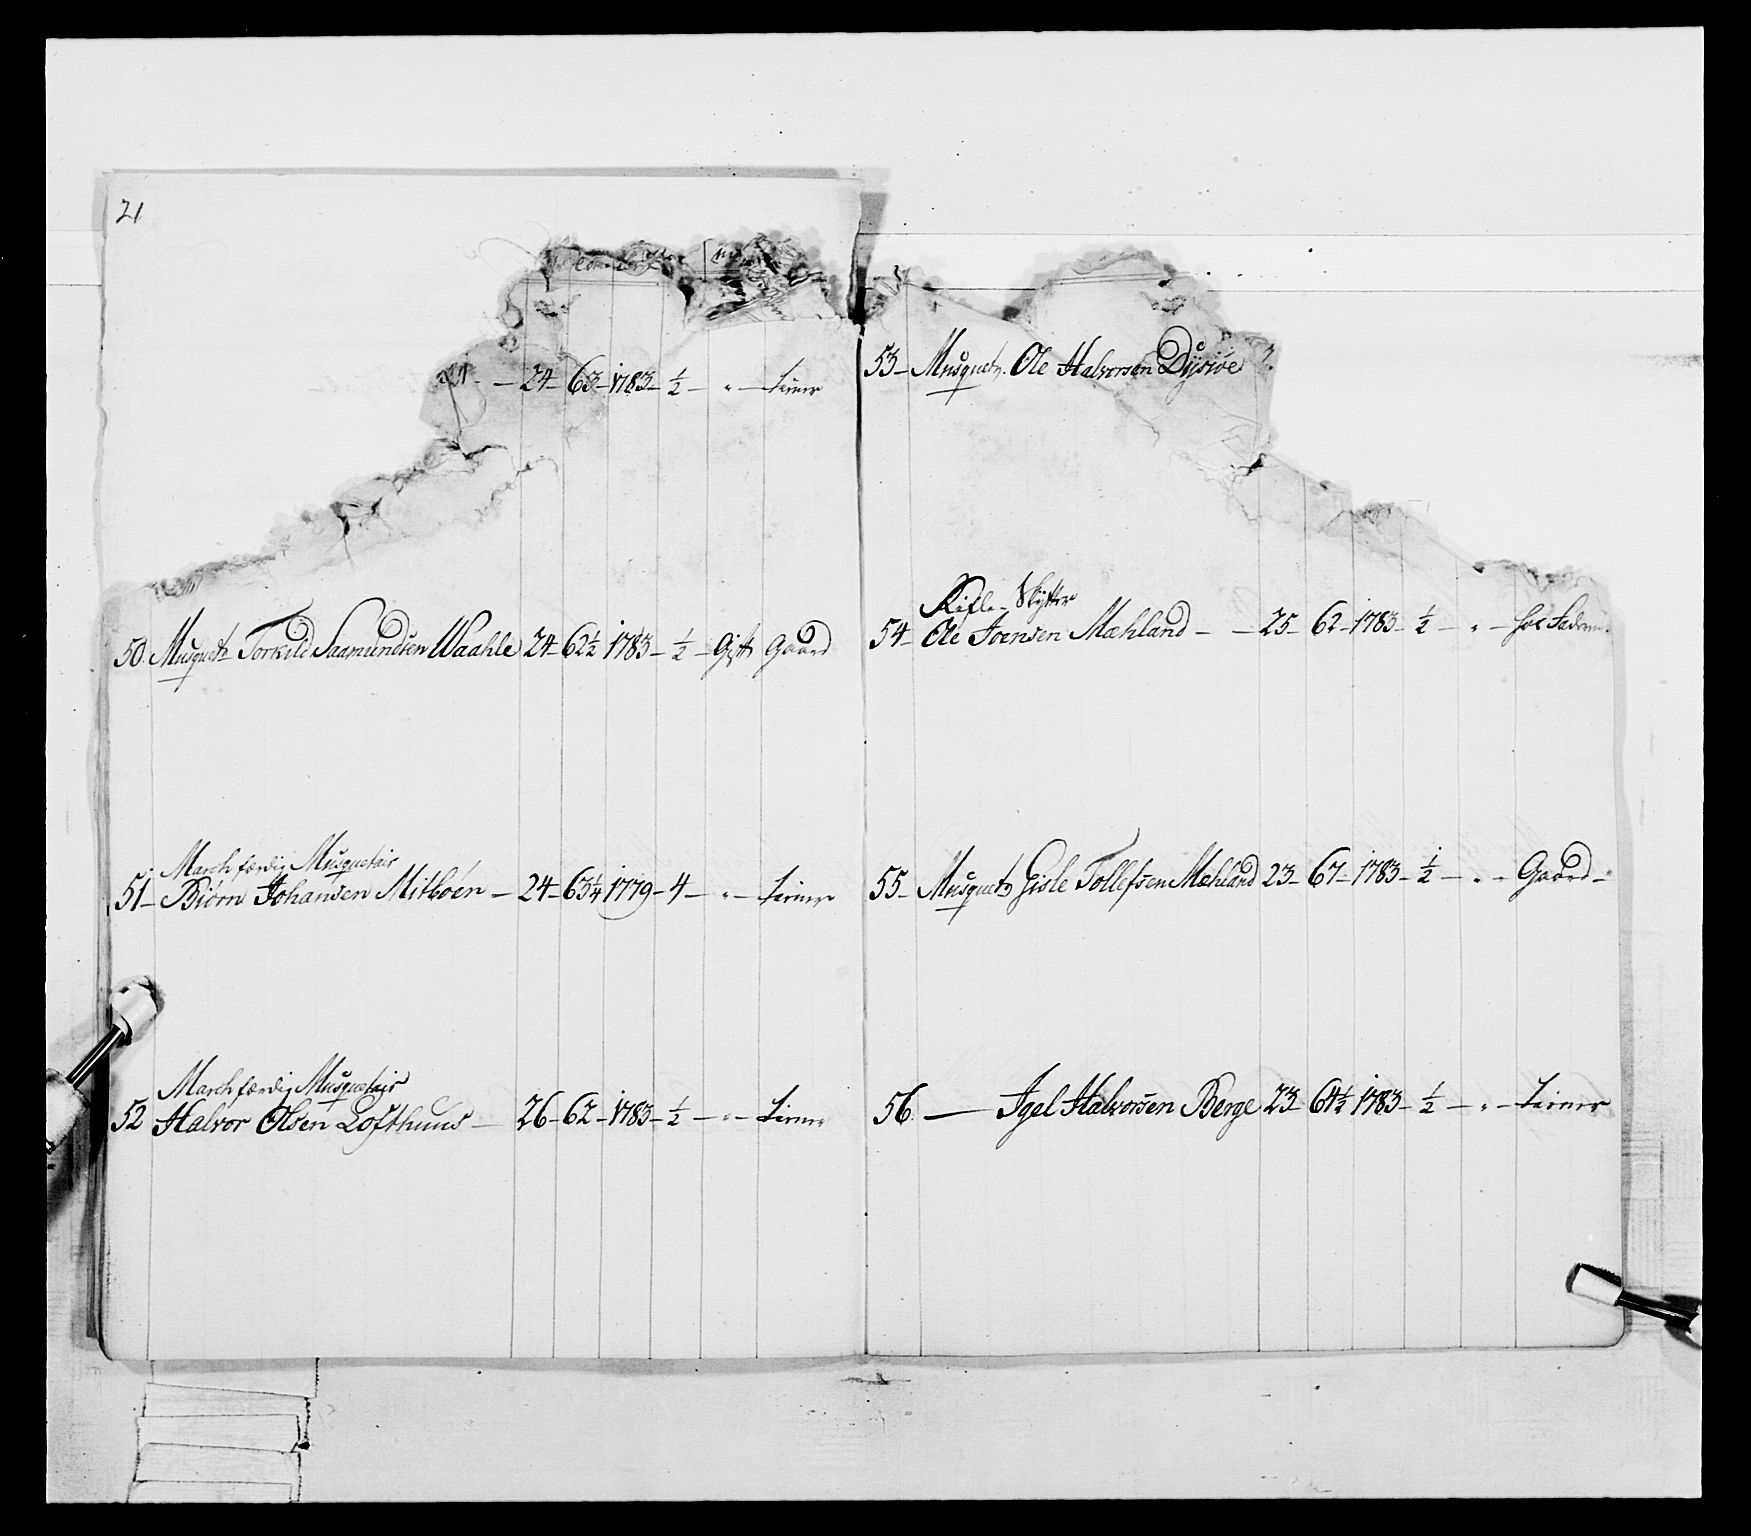 21
– 24 – 63 – 1783 – ½ – „ – Tiener
50. Musquet. Torkild Saamundsen Waahle 24 – 62½ 1783 – ½ – Gift Gaard
Marchfærdig Musquetair
51 – Biørn Johansen Mitbøen – 24 – 63¼ 1779 – 4 – „ – Tiener
Marchfærdig Musquetair
52 Halvor Olsen Lofthuus – 26 – 62 – 1783 – ½ – „ – Tiener
53 – Musquet. Ole Halvorsen Dysiøe
Rifle-Skytter
54 – Ole Joensen Mæhland – – 25 – 62 – 1783 – ½ – „ – hos
55 – Musquet. Gisle Tollefsen Mæhland 23 – 67 – 1783 – ½ – „ – Gaard –
56. — Igel Halvorsen Berge 23 – 61½ 1783 – ½ – „ – Tiener